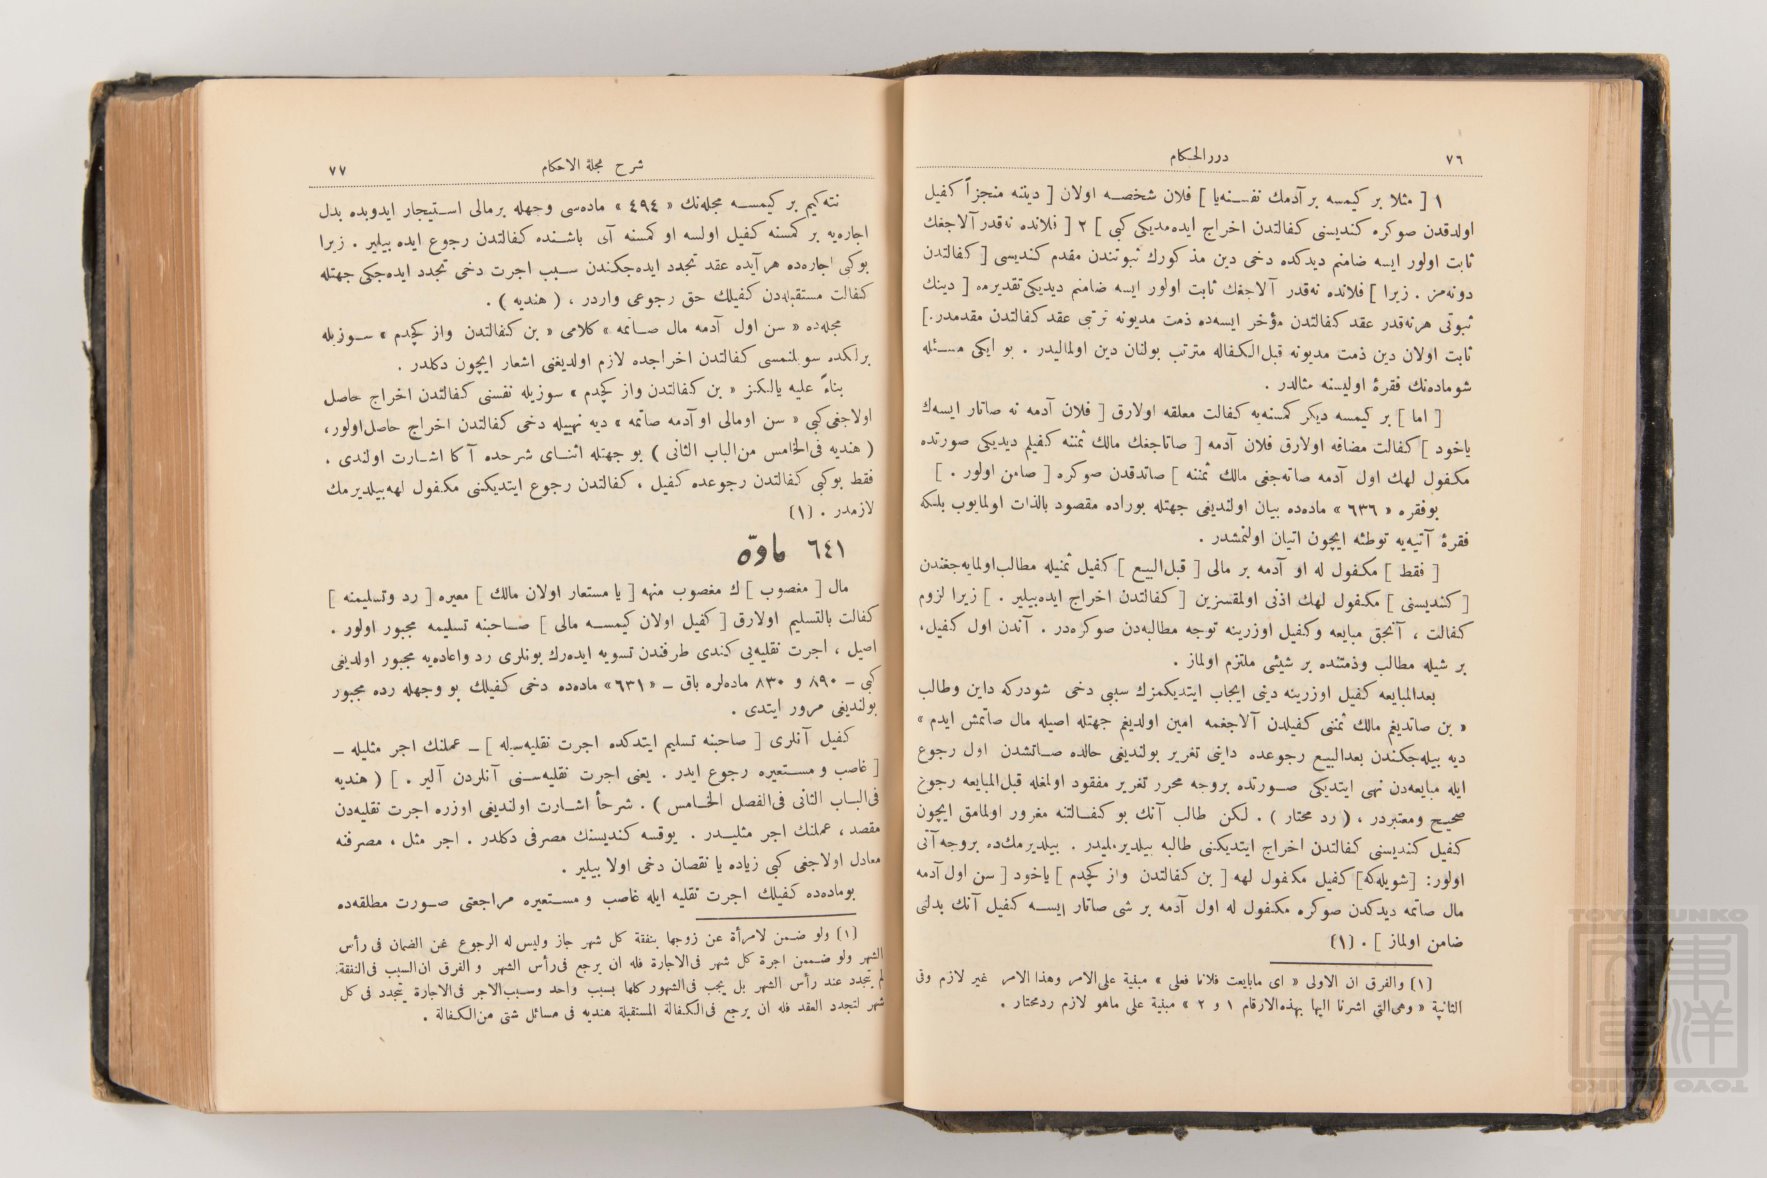 ٧٦
دررالحكام
١ [ مثلا بر كيمسه بر آدمك نفسنه‌يا ] فلان شخصه اولان [ ديننه منجزاً كفيل
اولدقدن صوكره كنديسنى كفالتدن اخراج ايده‌مديكى كبى ] ٢ [ فلانده نه‌قدر آلاجغك
ثابت اولور ايسه ضامنم ديدكده دخى دين مذكورك ثبوتندن مقدم كنديسى [ كفالتدن
دونه‌مز . زيرا ] فلانده نه‌قدر آلاجغك ثابت اولور ايسه ضامنم ديديكى تقديرده [ دينك
ثبوتى هرنه‌قدر عقد كفالتدن مؤخر ايسه‌ده ذمت مديونه ترتبى عقد كفالتدن مقدمدر.]
ثابت اولان دين ذمت مديونه قبل‌الكفاله مترتب بولنان دين اولماليدر . بو ايكى مسئله
شوماده‌نك فقرۀ اوليسنه مثالدر .
[ اما ] بر كيمسه ديكر كمسنه‌يه كفالت معلقه اولارق [ فلان آدمه نه صاتار ايسه‌ك
ياخود ] كفالت مضافه اولارق فلان آدمه [ صاتاجغك مالك ثمننه كفيلم ديديكى صورتده
مكفول لهك اول آدمه صاته‌جغى مالك ثمننه ] صاتدقدن صوكره [ ضامن اولور . ]
بوفقره « ٦٣٦ » ماده‌ده بيان اولنديغى جهتله بوراده مقصود بالذات اولمايوب بلكه
فقرۀ آتيه‌يه توطئه ايچون اتيان اولنمشدر .
[ فقط ] مكفول له او آدمه بر مالى [ قبل‌البيع ] كفيل ثمنيله مطالب‌اولمايه‌جغندن
[ كنديسنى ] مكفول لهك اذنى اولمقسزين [ كفالتدن اخراج ايده‌بيلير . ] زيرا لزوم
كفالت ، آنجق مبايعه وكفيل اوزرينه توجه مطالبه‌دن صوكره‌در . آندن اول كفيل،
بر شيله مطالب وذمتنده بر شيئى ملتزم اولماز .
بعدالمبايعه كفيل اوزرينه دينى ايجاب ايتديكمزك سببى دخى شودركه داين وطالب
« بن صاتديغم مالك ثمننى كفيلدن آلاجغمه امين اولديغم جهتله اصيله مال صاتمش ايدم »
ديه بيله‌جكندن بعدالبيع رجوعده داينى تغرير بولنديغى حالده صاتشدن اول رجوع
ايله مبايعه‌دن نهى ايتديكى صورتده بروجه محرر تغرير مفقود اولمغله قبل‌المبايعه رجوع
صحيح ومعتبردر ، ( رد محتار ) . لكن طالب آنك بو كفالتنه مغرور اولمامق ايچون
كفيل كنديسنى كفالتدن اخراج ايتديكنى طالبه بيلديرمليدر . بيلديرمك‌ده بروجه آتى
اولور: [شويله‌كه] كفيل مكفول لهه [ بن كفالتدن واز كچدم ] ياخود [ سن اول آدمه
مال صاتمه ديدكدن صوكره مكفول له اول آدمه بر شى صاتار ايسه كفيل آنك بدلنى
ضامن اولماز ] . (١)
(١) والفرق ان الاولى « اى مابايعت فلانا فعلى » مبنية على‌الامر وهذا الامر غير لازم وفى
الثانية « وهى‌التي اشرنا اليها بهذه‌الارقام ١ و ٢ » مبنية على ماهو لازم ردمحتار .
شرح مجلة الاحكام
٧٧
نته‌كيم بر كيمسه مجله‌نك « ٤٩٤ » ماده‌سى وجهله برمالى استيجار ايدوبده بدل
اجاره‌يه بر كمسنه كفيل اولسه او كمسنه آى باشنده كفالتدن رجوع ايده بيلير . زيرا
بوكبى اجاره‌ده هر آيده عقد تجدد ايده‌جكندن سبب اجرت دخى تجدد ايده‌جكى جهتله
كفالت مستقبله‌دن كفيلك حق رجوعى واردر ، ( هنديه ) .
مجله‌ده « سن اول آدمه مال صاتمه » كلامى « بن كفالتدن واز كچدم » سوزيله
برلكده سويلنمسى كفالتدن اخراجده لازم اولديغنى اشعار ايچون دكلدر .
بناءً عليه يالكز « بن كفالتدن واز كچدم » سوزيله نفسنى كفالتدن اخراج حاصل
اولاجغى كبى « سن اومالى او آدمه صاتمه » ديه نهييله دخى كفالتدن اخراج حاصل‌اولور،
( هنديه فى‌الخامس من‌الباب الثانى ) بو جهتله اثناى شرحده آكا اشارت اولندى .
فقط بوكبى كفالتدن رجوعده كفيل ، كفالتدن رجوع ايتديكنى مكفول لهه‌بيلديرمك
لازمدر . (١)
٦٤١ ماده
مال [ مغصوب ] ك مغصوب منهه [ يا مستعار اولان مالك ] معيره [ رد وتسليمنه ]
كفالت بالتسليم اولارق [ كفيل اولان كيمسه مالى ] صاحبنه تسليمه مجبور اولور .
اصيل ، اجرت نقليه‌يى كندى طرفندن تسويه ايده‌رك بونلرى رد واعاده‌يه مجبور اولديغى
كبى ـ ٨٩٠ و ٨٣٠ ماده‌لره باق ـ «٦٣١» ماده‌ده دخى كفيلك بو وجهله رده مجبور
بولنديغى مرور ايتدى .
كفيل آنلرى [ صاحبنه تسليم ايتدكده اجرت نقليه‌سيله ] ـ عملنك اجر مثليله ـ
[ غاصب و مستعيره رجوع ايدر . يعنى اجرت نقليه‌سنى آنلردن آلير . ] ( هنديه
فى‌الباب الثانى فى‌الفصل الخامس ) . شرحاً اشارت اولنديغى اوزره اجرت نقليه‌دن
مقصد ، عملنك اجر مثليدر . يوقسه كنديسنك مصرفى دكلدر . اجر مثل ، مصرفنه
معادل اولاجغى كبى زياده يا نقصان دخى اولا بيلير .
بوماده‌ده كفيلك اجرت نقليه ايله غاصب و مستعيره مراجعتى صورت مطلقه‌ده
(١) ولو ضمن لامرأة عن زوجها بنفقة كل شهر جاز وليس له الرجوع عن الضمان فى رأس
الشهر ولو ضمن اجرة كل شهر فى‌الاجارة فله ان يرجع فى‌رأس الشهر و الفرق ان‌السبب فى‌النفقة
لم يتجدد عند رأس الشهر بل يجب فى‌الشهور كلها بسبب واحد وسبب‌الاجر فى‌الاجارة يتجدد فى كل
شهر لتجدد العقد فله ان يرجع فى‌الكفالة المستقبلة هنديه فى مسائل شتى من‌الكفالة .
TOYO BUNKO
東洋文庫
TOYO BUNKO